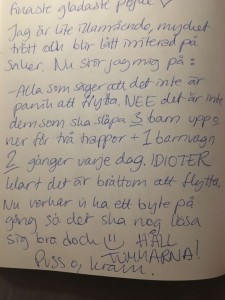 finaste gladaste pojke ♡
Jag är lite illamående, mycket
trött och blir lätt irriterad på
saker. Nu stör jag mig på:
-Alla som säger att det inte är
panik att flytta. NEE det är inte
dem som ska släpa 3 barn upp o
ner för två trappor + 1 barnvagn
2 gånger varje dag. IDIOTER
klart det är bråttom att flytta.
Nu verkar vi ha ett byte på
gång så det ska nog lösa
sig bra dock !! HÅLL
TUMMARNA!
Puss o kram.